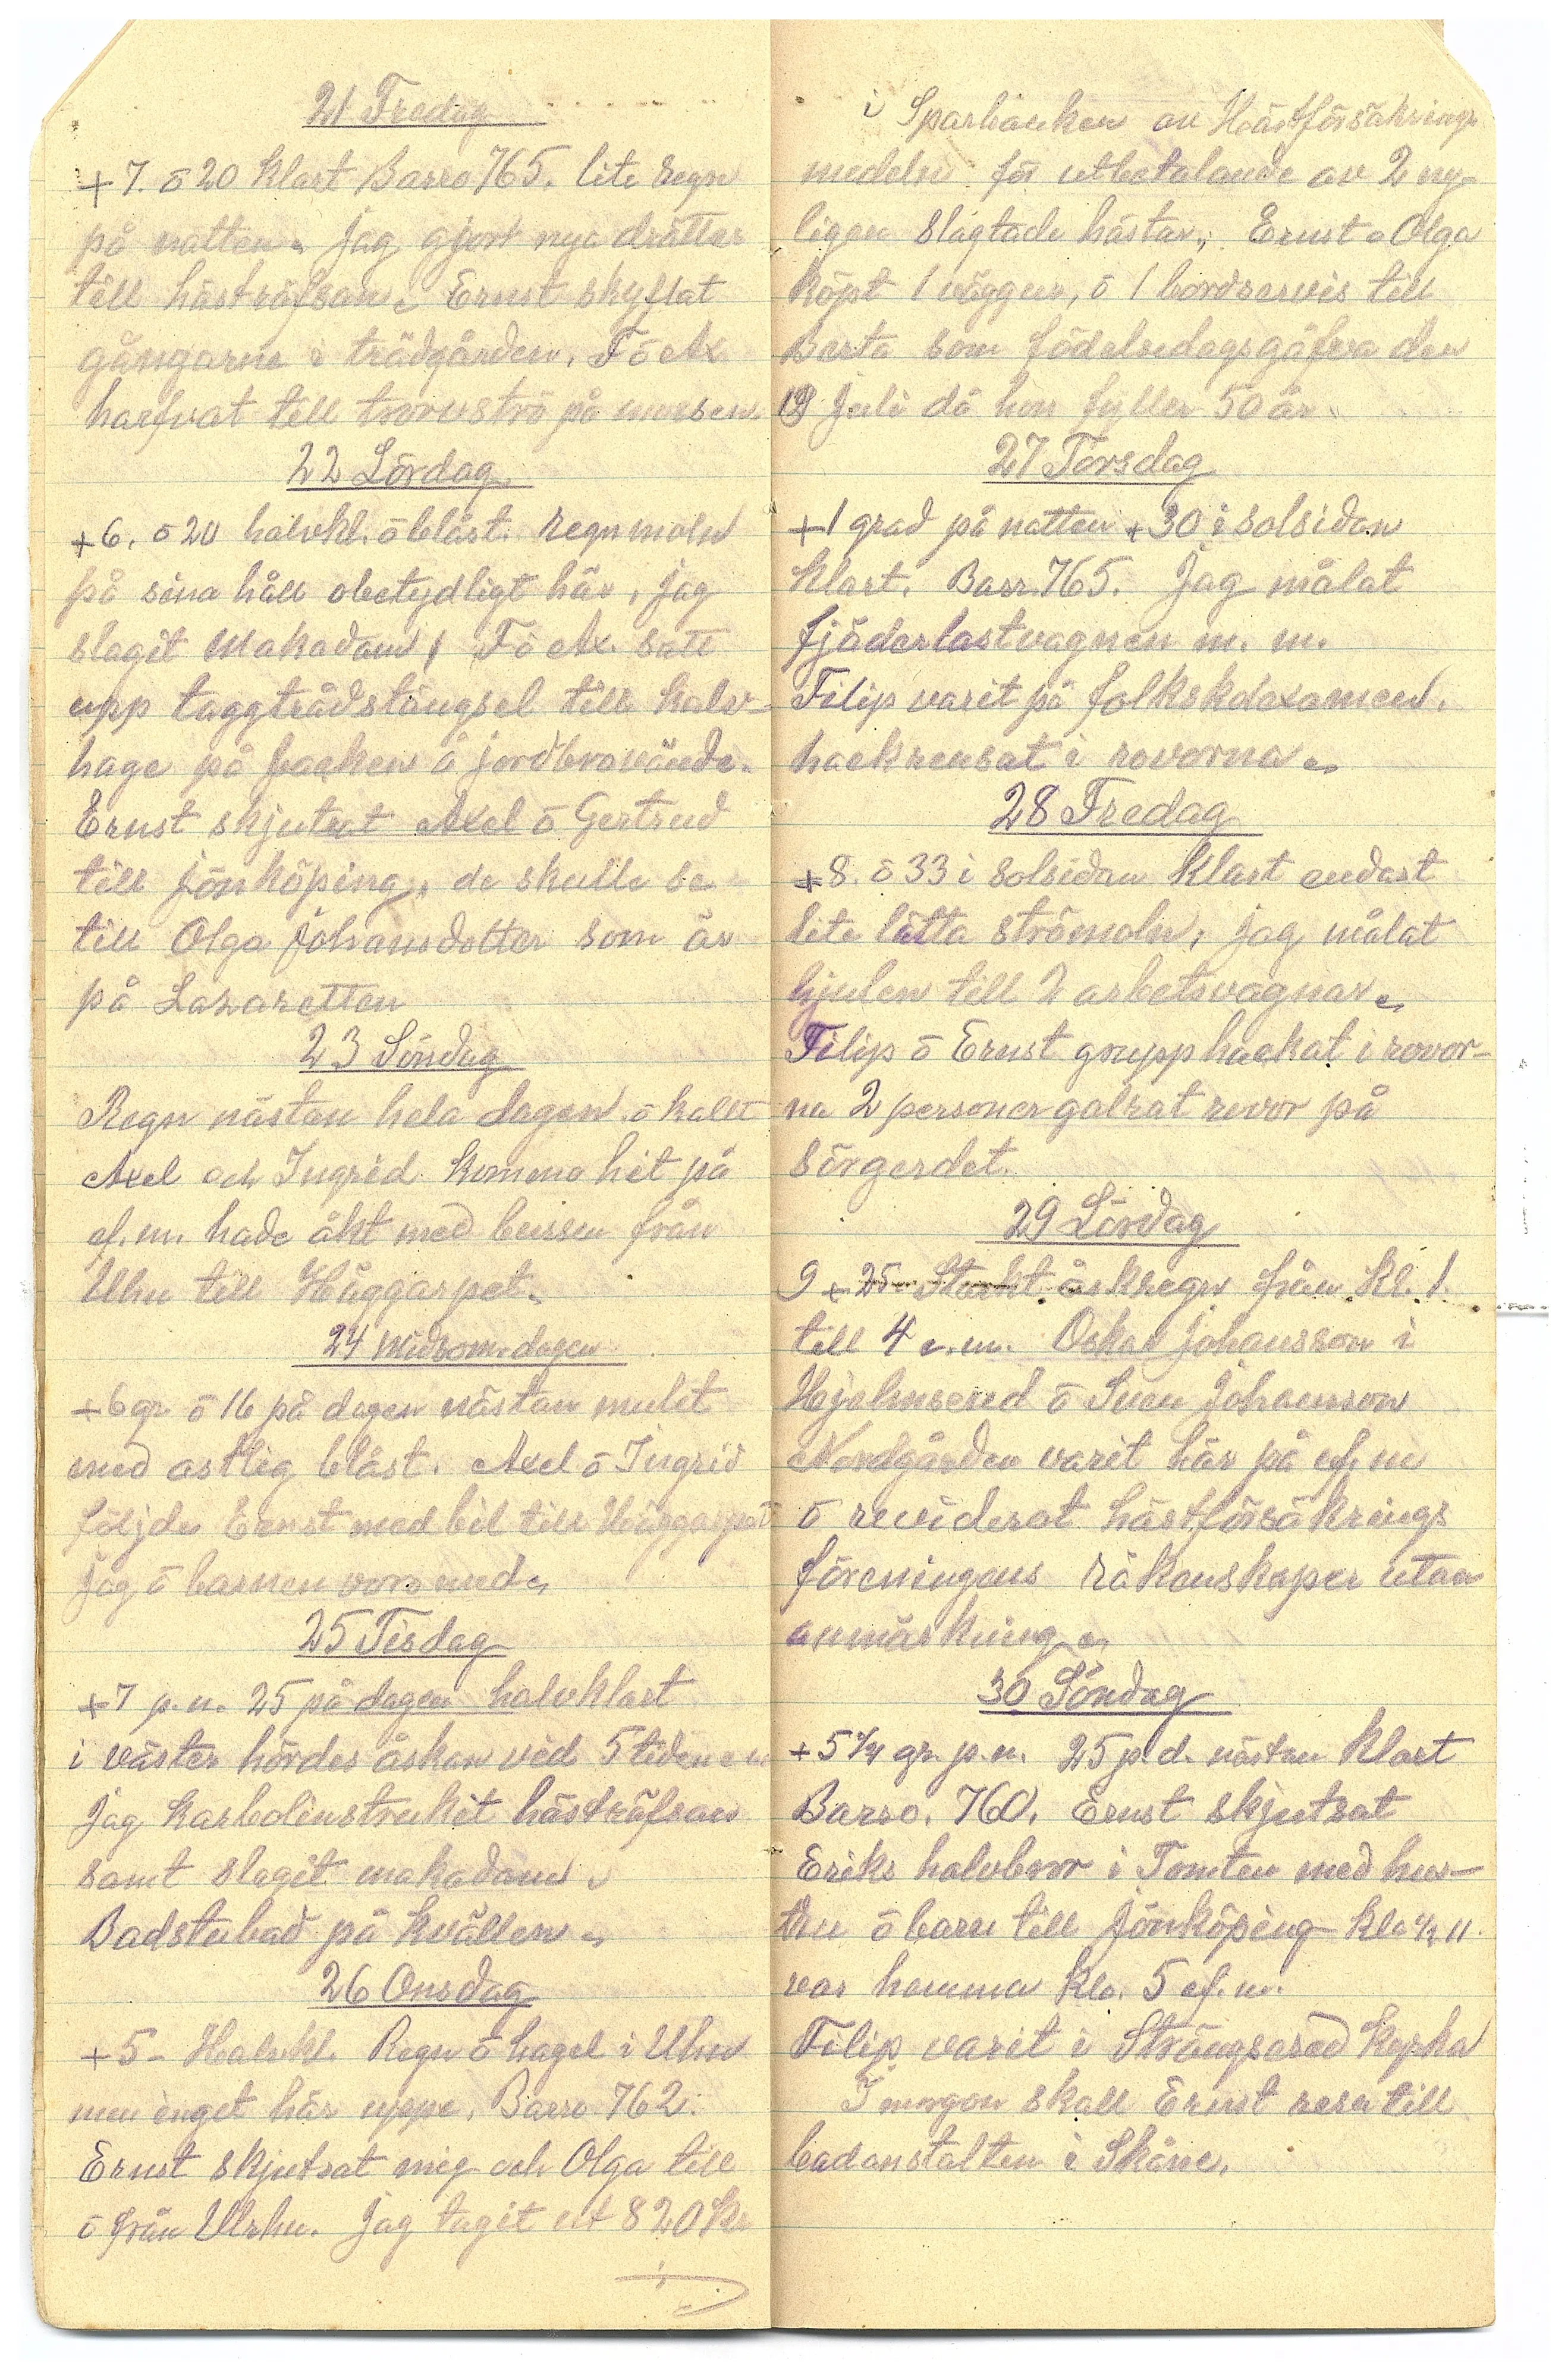 21 Fredag
+7. ō 20 Klart Barro 765. lite regn
på natten. Jag gjort nya drätter
till hästräfsan. Ernst skyflat
gångarne i trädgården. F ō Ax
harfvat till torvströ på mossen.
22 Lördag
+6. ō 20 halvkl. ō blåst. Regnmoln
på sina håll obetydligt här. Jag
slagit Makadam, F ō Ax. satt
upp taggtrådstängsel till kalv-
hage på backen å jordbrovände.
Ernst skjutsat Axel ō Gertrud
till Jönköping, de skulle se
till Olga Johansdotter som är
på Lazaretten
23 Söndag
Regn nästan hela dagen ō kallt
Axel och Ingrid kommo hit på
ef.m. hade åkt med bussen från
Uhn till Häggarpet.
24 Midsom.dagen
+6 gr. ō 16 på dagen nästan mulet
med astlig blåst. Axel ō Ingrid
följde Ernst med bil till Häggarpet
Jag ō barnen voro med.
25 Tisdag
+7 p.n. 25 på dagen halvklart
i väster hördes åskan vid 5 tiden em
Jag karbolinstrukit hästräfsan
samt slagit makadam.
Badstubad på kvällen.
26 Onsdag
+5- Halvkl. Regn ō hagel i Uhn
men inget här uppe. Barro 762.
Ernst skjutsat mig och Olga till
ō från Ulrhn. Jag tagit ut 820 Kr
i Sparbanken av Hästförsäkrings
medeln för utbetalande av 2 ny-
ligen slagtade hästar. Ernst o Olga
köpt 1 väggur, ō 1 bordservis till
Berta som födelsedagsgåfva den
19 Juli då hon fyller 50 år.
27 Torsdag
+1 grad på natten +30 i solsidan
Klart. Barr. 765. Jag målat
fjäderlastvagnen m. m.
Filip varit på folkskolexamen.
hackrensat i rovorna.
28 Fredag
+8. ō 33 i Solsidan Klart endast
lite lätta strömoln, jag målat
hjulen till 2 arbetsvagnar.
Filip ō Ernst grupphackat i rovor-
na 2 personer galrat rovor på
sörgerdet.
29 Lördag
9 + 25- Starkt åskregn från Kl. 1.
till 4 e.m. Oskar Johansson i
Hjelmsered ō Sven Johansson
Nordgården varit här på ef.m
ō reviderat hästförsäkrings
föreningens räkenskaper utan
anmärkning.
30 Söndag
+5 3/4 gr. p.n. 25 p.d. nästan Klart
Barro. 760. Ernst skjutsat
Eriks halvbror i Tomten med hus-
tru ō barn till Jönköping Kl. 1/2 11.
var hemma Klo. 5 ef.m.
Filip varit i Strängsered kyrka
I morgon skall Ernst resa till
badanstalten i Skåne.